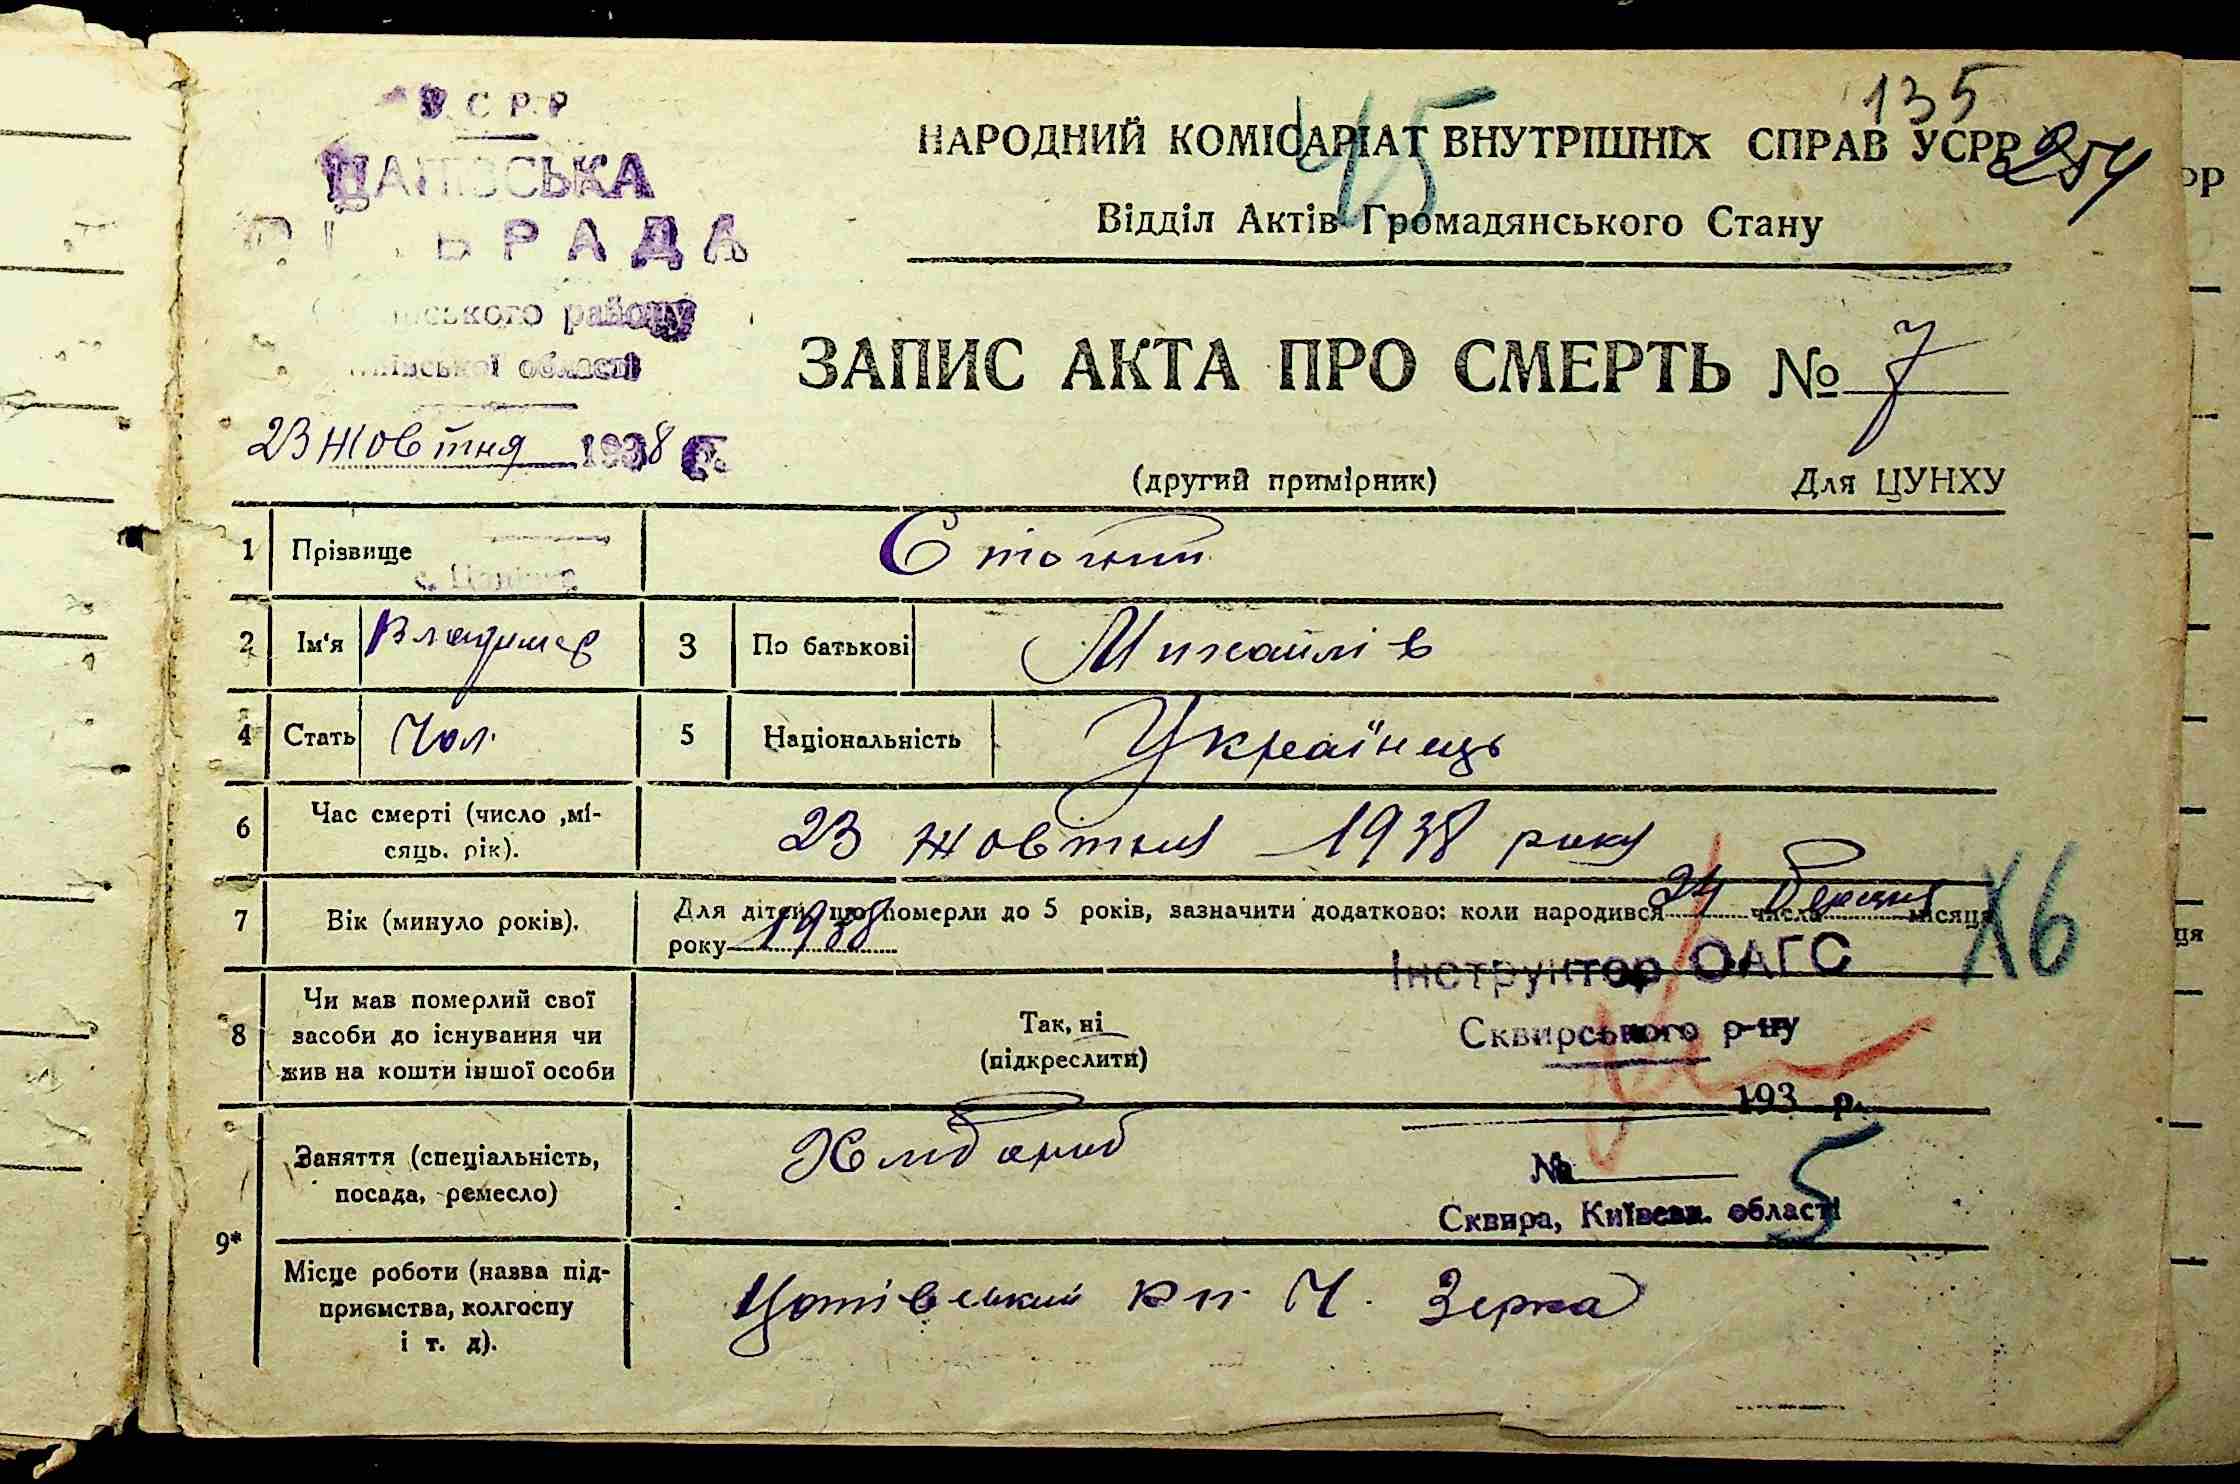 УСРР
135
НАРОДНИЙ КОМІСАРІАТ ВНУТРІШНІХ СПРАВ УСРР
254
45
ЦАПІЇВСЬКА
РАДА
Відділ Актів Громадянського Стану
району
області
ЗАПИС АКТА ПРО СМЕРТЬ № 7
23 жовтня 1938 р.
(другий примірник) Для ЦУНХУ
1 Прізвище Стогній
2 Ім'я Владимер 3 По батькові Михайлів
4 Стать Чол. 5 Національність Українець
6 Час смерті (число ,мі-
сяць. рік). 23 жовтня 1938 року
7 Вік (минуло років). Для дітей, що померли до 5 років, зазначити додатково: коли народився 24 числа березня місяця
року 1938
Х6
Інструктор ОАГС
8 Чи мав померлий свої
засоби до існування чи
жив на кошти іншої особи
Так, ні
(підкреслити)
Сквирського р-ну
193 р.
9* Заняття (спеціальність,
посада, ремесло) Хлібороб
№
5
Сквира, Київськ. області
Місце роботи (назва під-
приємства, колгоспу
і т. д).
кп. Ч. Зірка